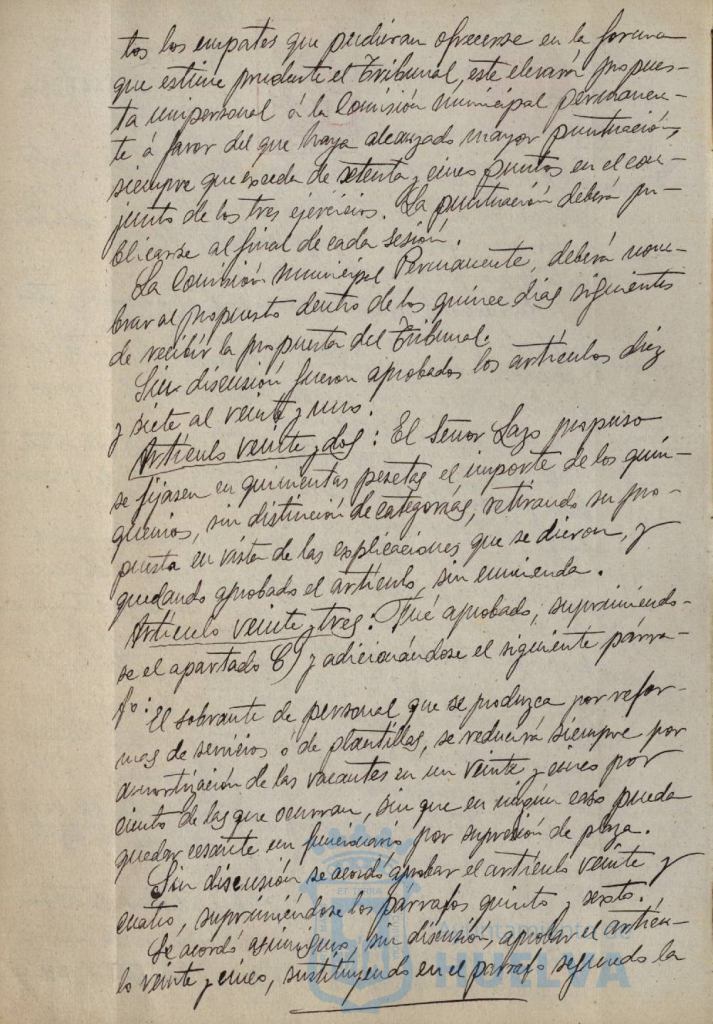 tos los empates que pudieran ofrecerse en la forma
que estime prudente el Tribunal, este elevará propues-
ta unipersonal á la Comisión municipal permanen-
te á favor del que haya alcanzado mayor puntuación,
siempre que exceda de setenta y cinco puntos en el con-
junto de los tres ejercicios. La puntuación deberá pu-
blicarse al final de cada sesión.
La Comisión Municipal Permanente, deberá nom-
brar al propuesto dentro de los quince días siguientes
de recibir la propuesta del Tribunal.
Sin discusión fueron aprobados los artículos diez
y siete al veinte y uno.
Artículo veinte y dos: El Señor Lazo propuso
se fijasen en quinientas pesetas el importe de los quin-
quenios, sin distinción de categorías, retirando su pro-
puesta en vista de las explicaciones que se dieron, y
quedando aprobado el artículo, sin enmienda.
Artículo veinte y tres: Fué aprobado, suprimiendo-
se el apartado C) y adicionándose el siguiente párra-
fo:
El sobrante de personal que se produzca por refor-
mas de servicios ó de plantillas, se reducirá siempre por
amortización de las vacantes en un veinte y cinco por
ciento de las que ocurran, sin que en ningún caso pueda
quedar cesante un funcionario por supresión de plaza.
Sin discusión se acordó aprobar el artículo veinte y
cuatro, suprimiéndose los párrafos quinto y sexto.
Se acordó asimismo, sin discusión, aprobar el artícu-
lo veinte y cinco, sustituyendo en el párrafo segundo la
HUELVA